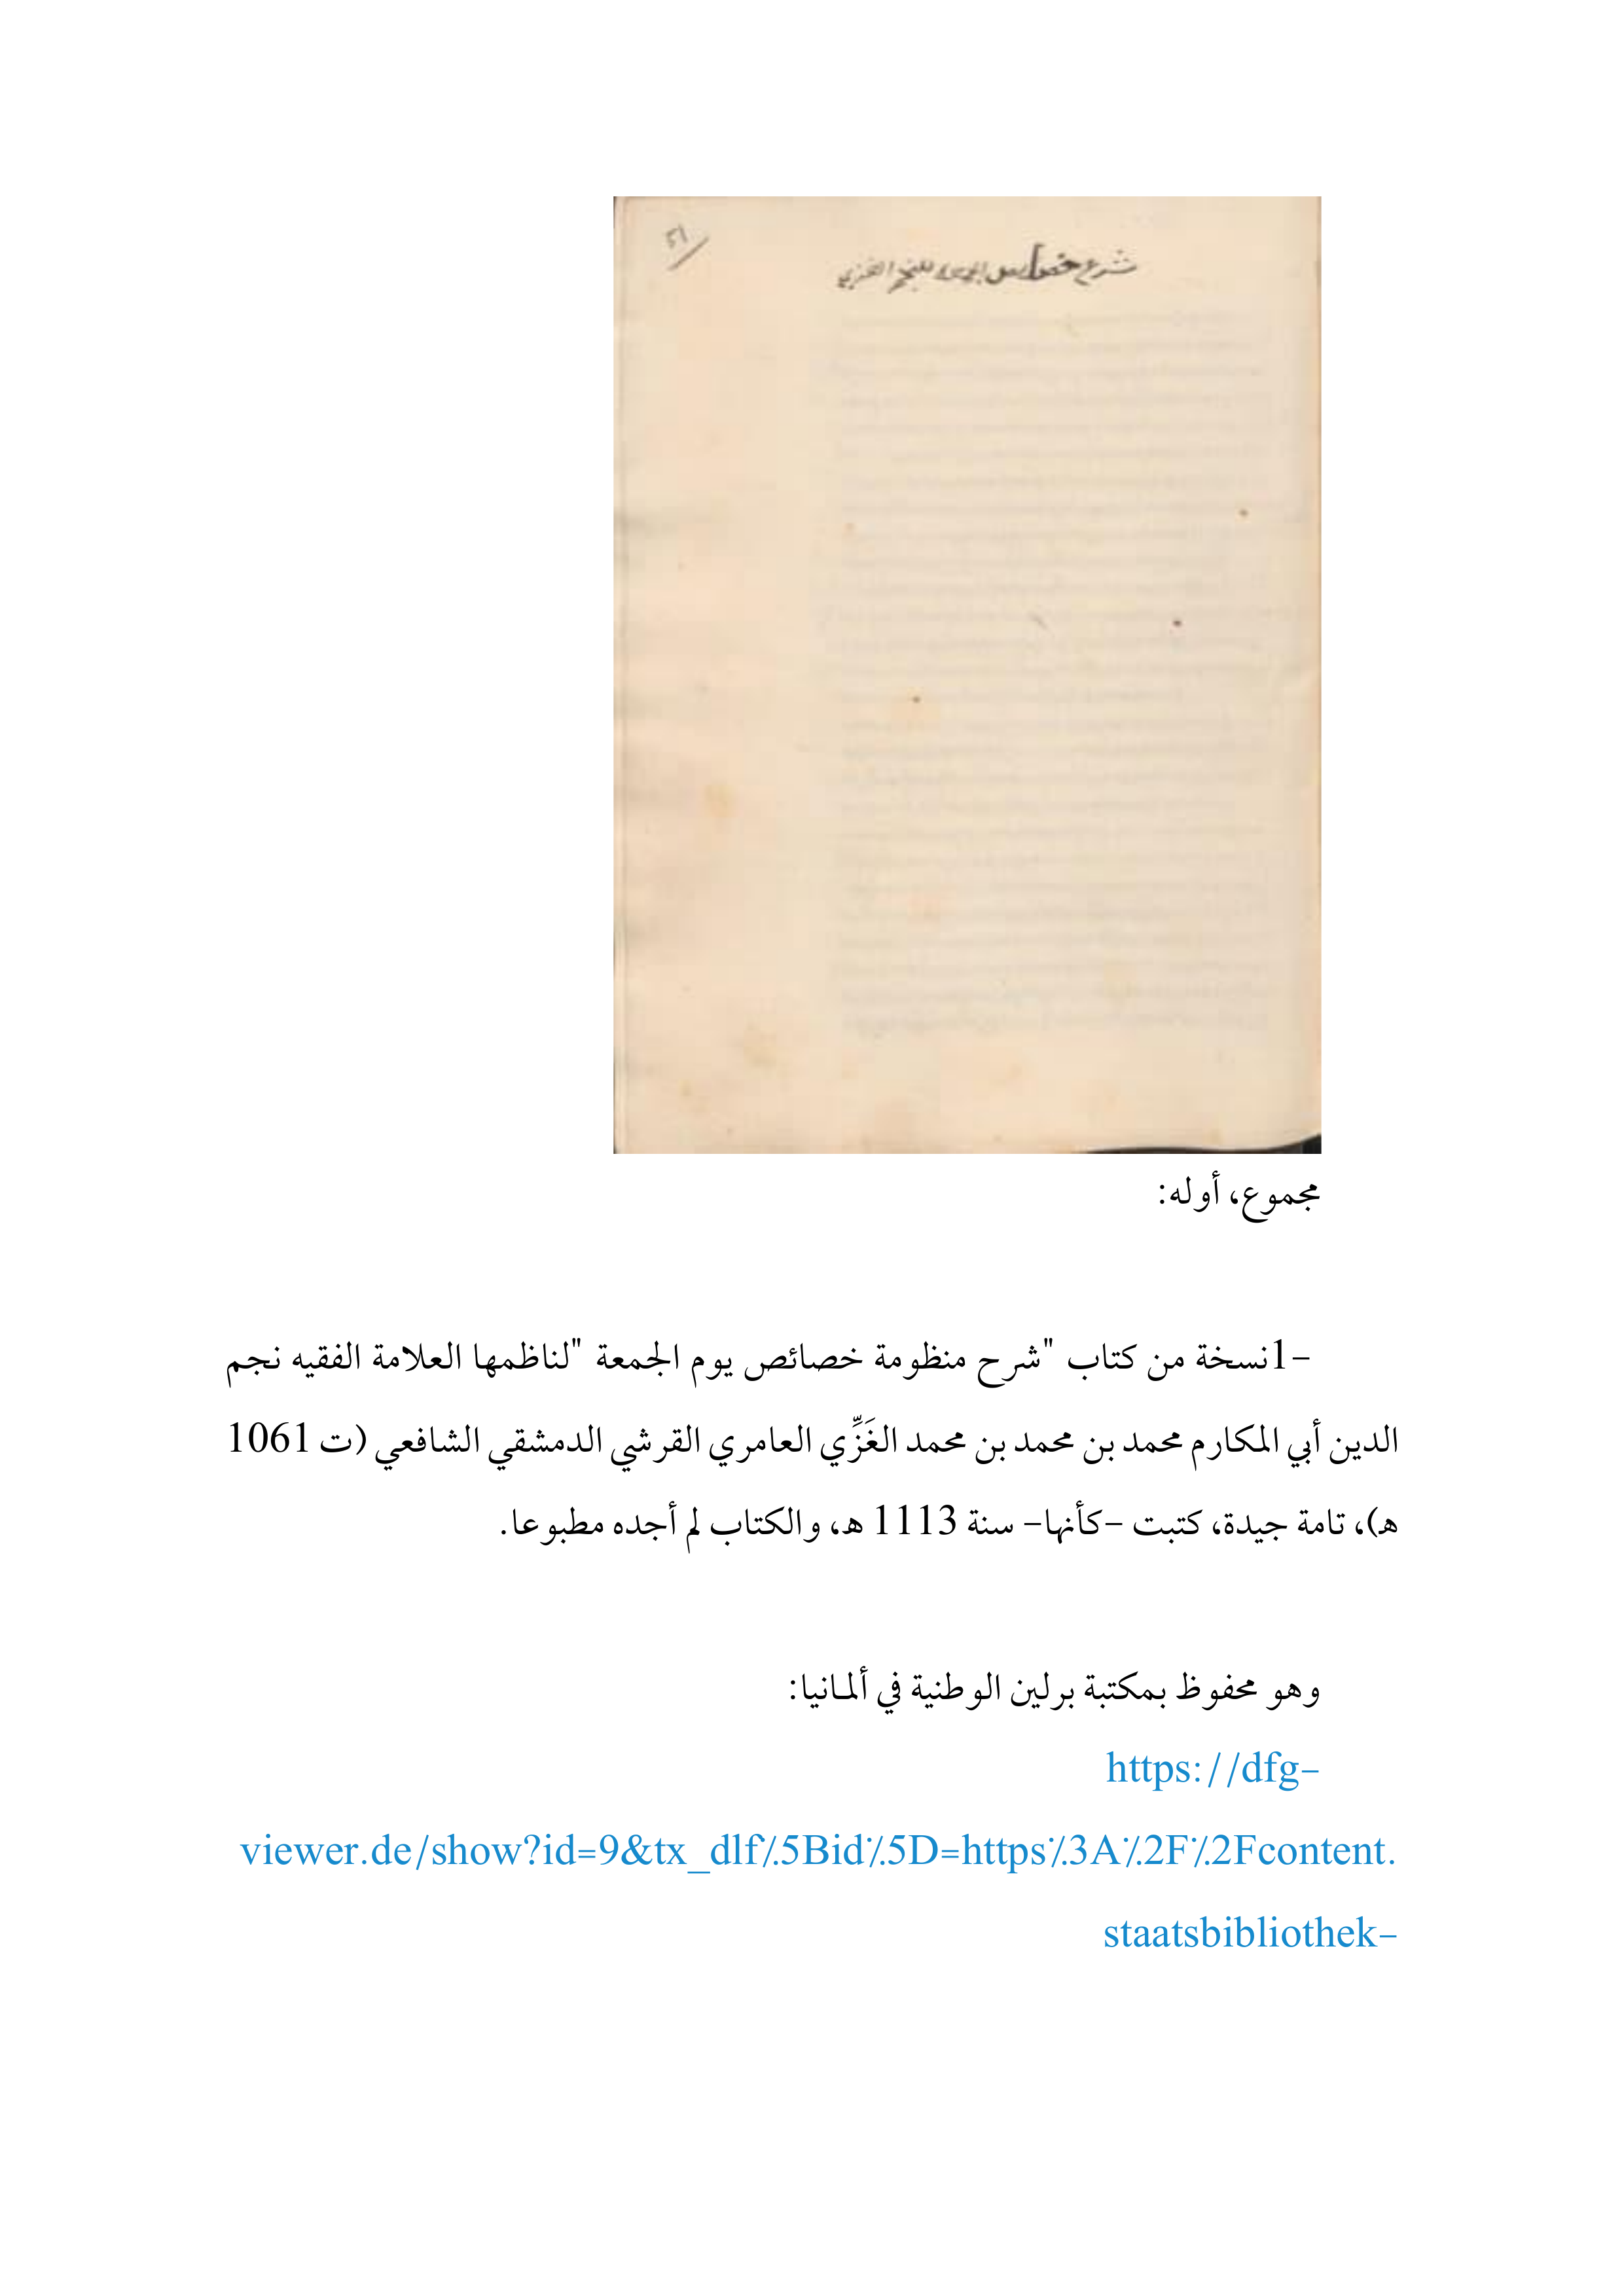 ٥١
شرح خصايص الجمعة للنجم الغزي
مجموع، أوله:
1-نسخة من كتاب "شرح منظومة خصائص يوم الجمعة "لناظمها العلامة الفقيه نجم
الدين أبي المكارم محمد بن محمد بن محمد الغَزِّي العامري القرشي الدمشقي الشافعي (ت 1061
هـ)، تامة جيدة، كتبت -كأنها- سنة 1113 هـ، والكتاب لم أجده مطبوعا.
وهو محفوظ بمكتبة برلين الوطنية في ألمانيا:
https://dfg-
viewer.de/show?id=9&tx_dlf%5Bid%5D=https%3A%2F%2Fcontent.
staatsbibliothek-